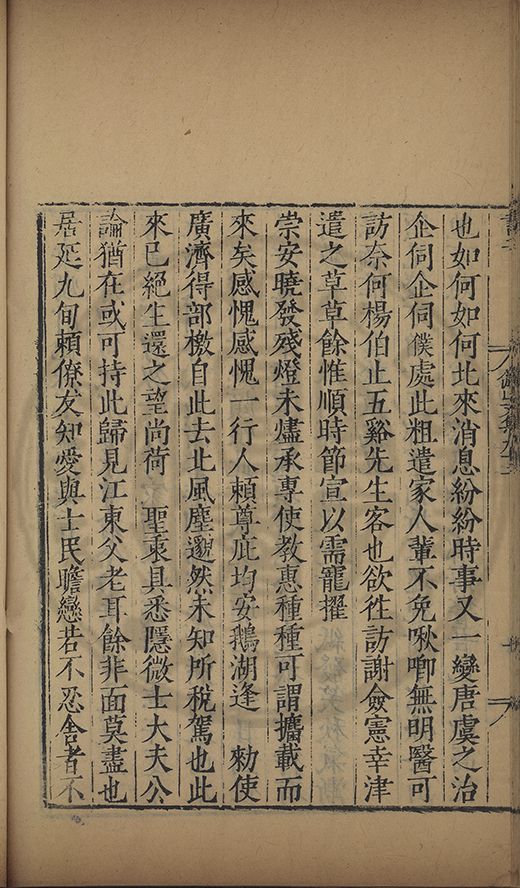 也如何如何北來消息紛紛時事又一變唐虞之治
企伺企伺僕處此粗遣家人輩不免啾唧無明醫可
訪奈何楊伯止五谿先生客也欲徃訪謝僉憲幸津
遣之草草餘惟順時節宣以需寵擢
崇安曉發殘燈未燼承專使教惠種種可謂攟載而
來矣感愧感愧一行人賴尊庇均安鵝湖逢　勅使
廣濟得部檄自此去北風塵邈然未知所稅駕也此
來已絕生還之望尚荷　聖乘具悉隱微士大夫公
論猶在或可持此歸見江東父老耳餘非面莫盡也
居延九旬賴僚友知愛與士民瞻戀若不忍舍者不